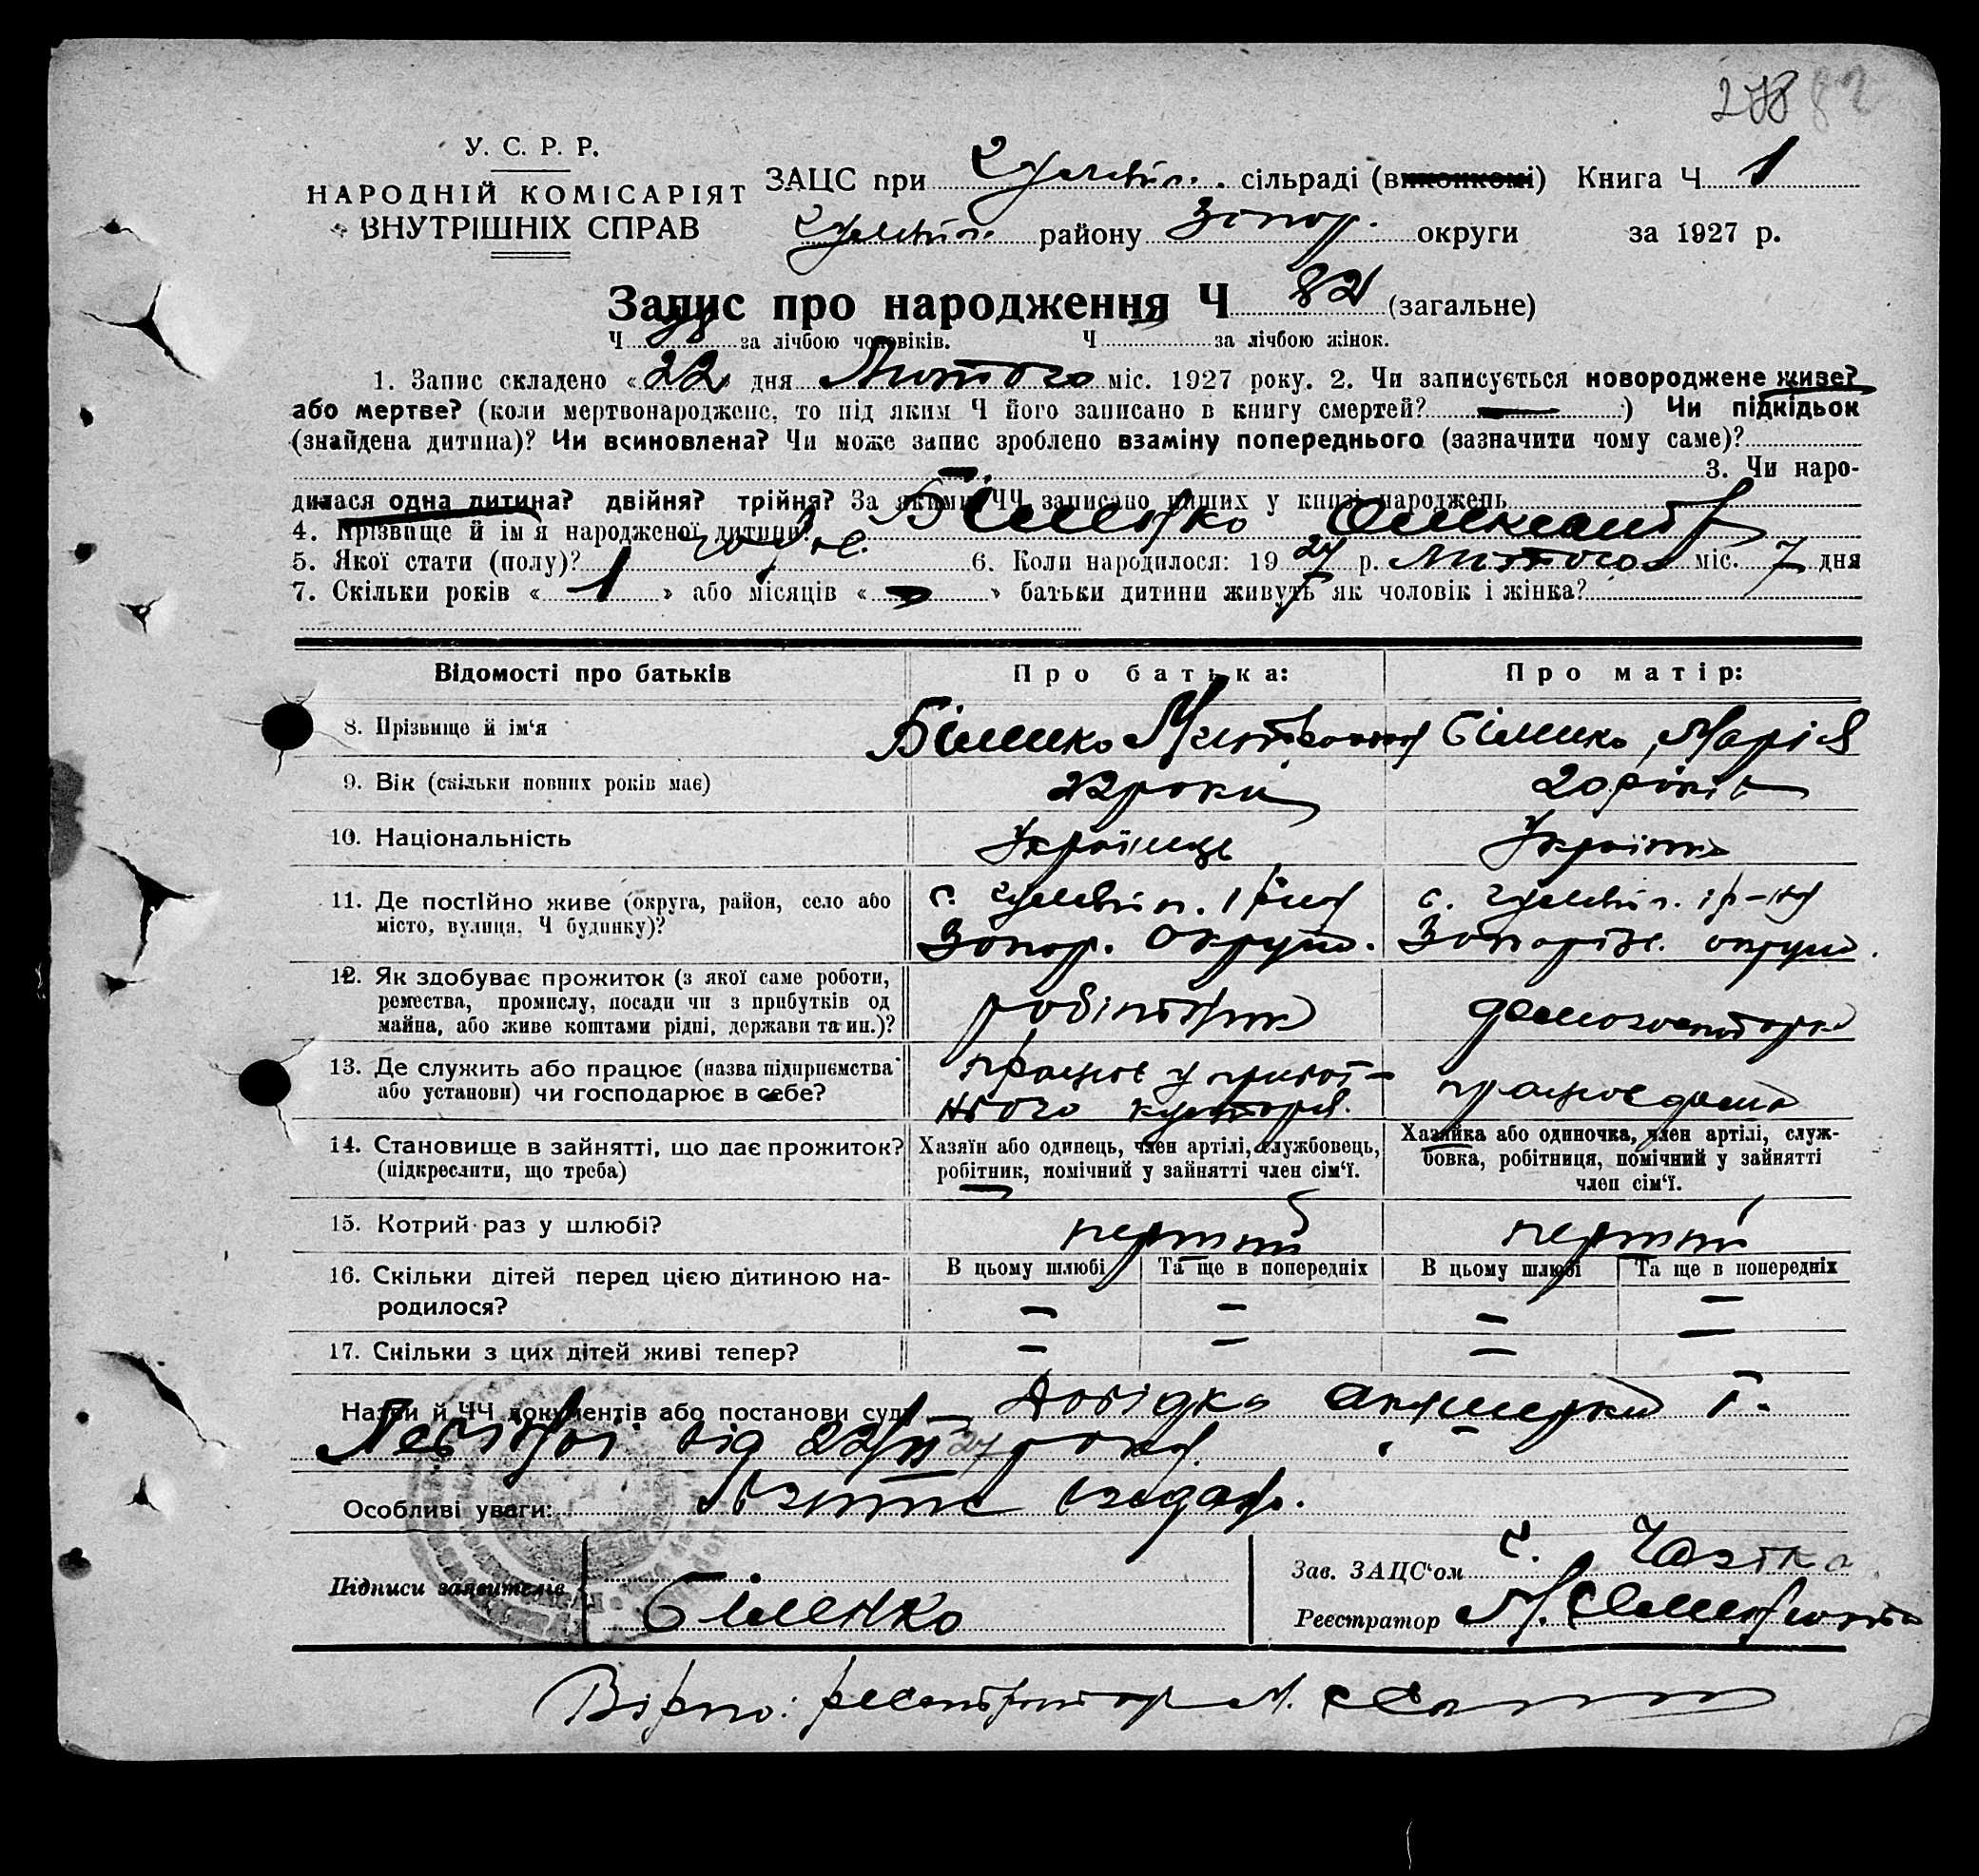 278 82
У. С. Р. Р.
НАРОДНІЙ КОМІСАРІЯТ
ВНУТРІШНІХ СПРАВ
ЗАЦС при сільраді (виконкомі) Книга Ч 1
району Запор. округи за 1927 р.
Запис про народження Ч 82 (загальне)
Ч за лічбою чоловіків. Ч за лічбою жінок.
1. Запис складено « 22 » дня Лютого міс. 1927 року. 2. Чи записується новороджене живе?
або мертве? (коли мертвонароджене, то під яким Ч його записано в книгу смертей? — ) Чи підкідьок
(знайдена дитина)? Чи всиновлена? Чи може запис зроблено взаміну попереднього (зазначити чому саме)?
3. Чи наро-
дилася одна дитина? двійня? трійня? За якими ЧЧ записано инших у книзі народжень
4. Прізвище й ім'я народженої дитини? Біленко Олександр
5. Якої стати (полу)? чолов. 6. Коли народилося: 19 27 р. Лютого міс. 7 дня
7. Скільки років « 1 » або місяців « — » батьки дитини живуть як чоловік і жінка?
Відомості про батьків Про батька: Про матір:
8. Прізвище й ім'я Біленко Митрофан Біленко Марія
9. Вік (скільки повних років має) 22 роки 20 років
10. Національність Українець Українка
11. Де постійно живе (округа, район, село або
місто, вулиця, Ч будинку)?
Запор. округи. Запоріж. округи.
12. Як здобуває прожиток (з якої саме роботи,
ремества, промислу, посади чи з прибутків од
майна, або живе коштами рідні, держави та ин.)?
робітник домогосподарка
13. Де служить або працює (назва підприємства
або установи) чи господарює в себе?
працює у приват-
нього працює дома
14. Становище в зайнятті, що дає прожиток?
(підкреслити, що треба)
Хазяїн або одинець, член артілі, службовець,
робітник, помічний у зайнятті член сім'ї.
Хазяйка або одиночка, член артілі, служ-
бовка, робітниця, помічний у зайнятті
член сім'ї.
15. Котрий раз у шлюбі? перший перший
16. Скільки дітей перед цією дитиною на-
родилося?
В цьому шлюбі Та ще в попередніх В цьому шлюбі Та ще в попередніх
— — — —
17. Скільки з цих дітей живі тепер? — — — —
Назви й ЧЧ документів або постанови суду Довідка акушерки
від 22/II 27 року.
Особливі уваги: Витяг видан.
Підписи заявителів Біленко
Зав. ЗАЦС'ом
Реєстратор
Вірно: реєстратор